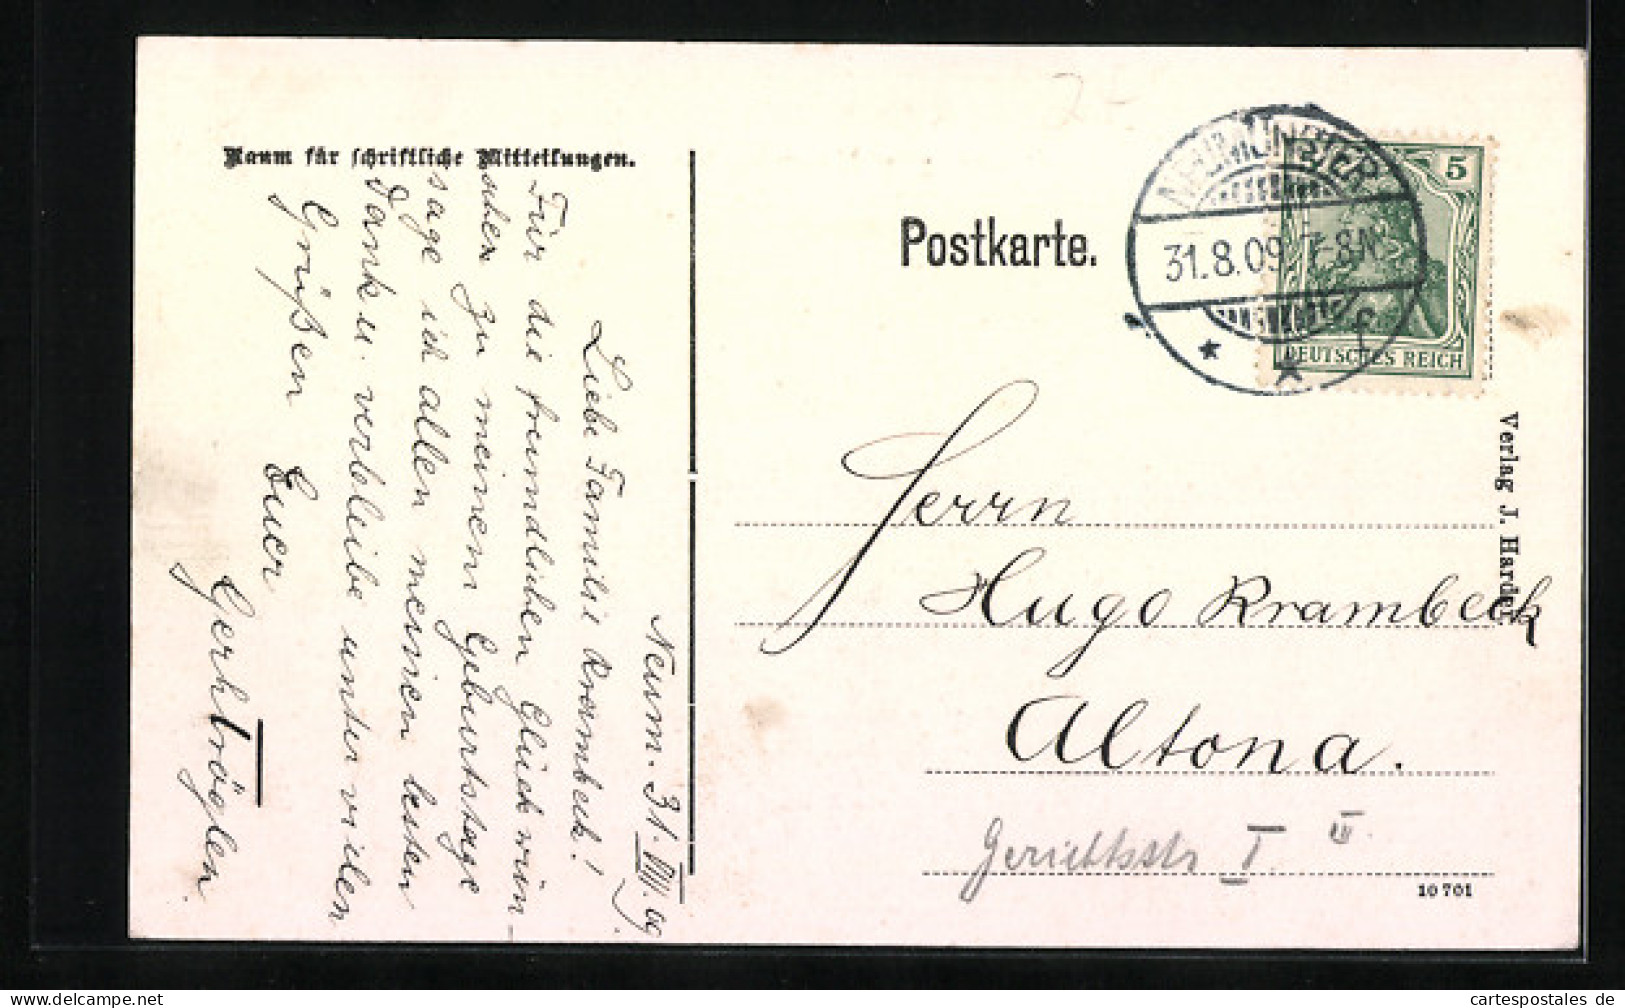 Raum für schriftliche Mitteilungen.
Neum. 31.VIII.09.
Liebe Familie Krambeck!
Für die freundlichen Glückwün-
schen zu meinem Geburtstage
sage ich allen meinen besten
Dank u. verbleibe unter vielen
Grüßen Euer
Postkarte.
NEUMÜNSTER
31.8.09 7-8N
* * f
5
DEUTSCHES REICH
Herrn
Hugo Krambeck
Altona.
Gerichtsstr I. III.
Verlag J. Harder
10 701
cartespostales de